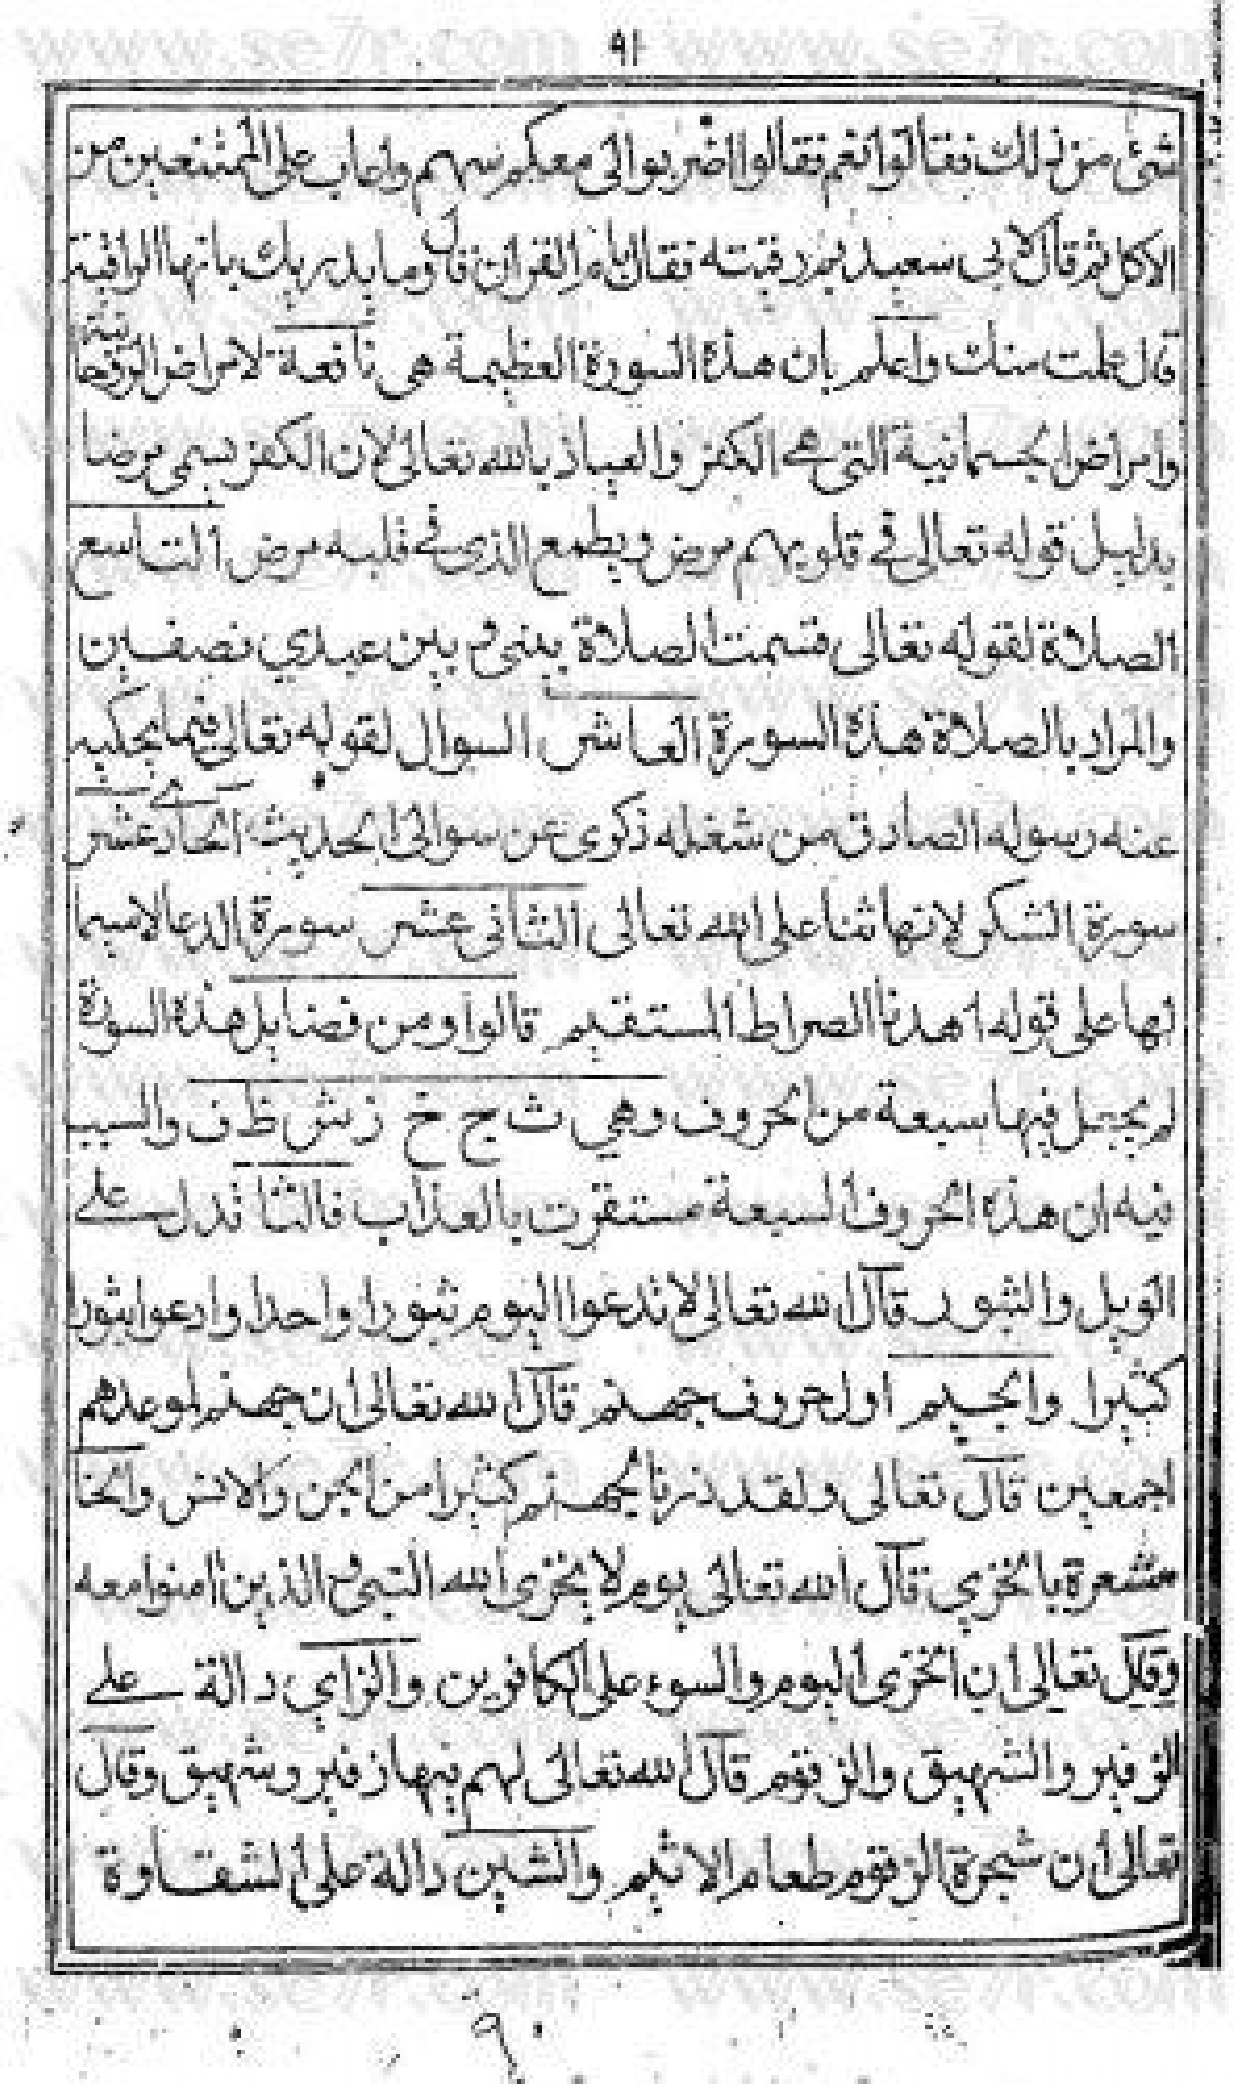 www.se7r.com www.se7r.com
٩١
شئ من ذلك فقالوا نعم فقالوا اضربوا لى معكم سهم وعاب على الممتنعين من
الاكل ثم قال لابى سعيد بم رقيته فقال بام القران قال وما يدريك بانها الراقية
قال علمت منك واعلم بان هذه السورة العظيمة هى نافعة لامراض الروحانية
وامراض الجسمانية التى هى الكفر والعياذ بالله تعالى لان الكفر يسمى مرضا
بدليل قوله تعالى فى قلوبهم مرض ويطمع الذى فى قلبه مرض التاسع
الصلاة لقوله تعالى قسمت الصلاة بينى وبين عبدي نصفين
والمراد بالصلاة هذه السورة العاشر السوال لقوله تعالى فيما يحكيه
عنه رسوله الصادق من شغله ذكرى عن سوالى الحديث الحادى عشر
سورة الشكر لانها ثنا على الله تعالى الثانى عشر سورة الدعا لاسيما
لها على قوله اهدنا الصراط المستقيم قالوا ومن فضايل هذه السورة
لم يجعل فيها سبعة من الحروف وهي ث ج خ ز ش ظ ف والسبب
فيه ان هذه الحروف السبعة مستقرت بالعذاب فالثا تدل على
الويل والثبور قال الله تعالى لا تدعوا اليوم ثبورا واحدا وادعوا ثبورا
كثيرا والجيم اول حروف جهنم قال الله تعالى ان جهنم لموعدهم
اجمعين قال تعالى ولقد ذرنا لجهنم كثيرا من الجن والانس والخا
مشعرة بالخزي قال الله تعالى يوم لا يخزى الله النبى والذين امنوا معه
وقال تعالى ان الخزى اليوم والسوء على الكافرين والزاي دالة على
الزفير والشهيق والزقوم قال الله تعالى لهم فيها زفير وشهيق وقال
تعالى ان شجرة الزقوم طعام الاثيم والشين دالة على الشقاوة
٩٠